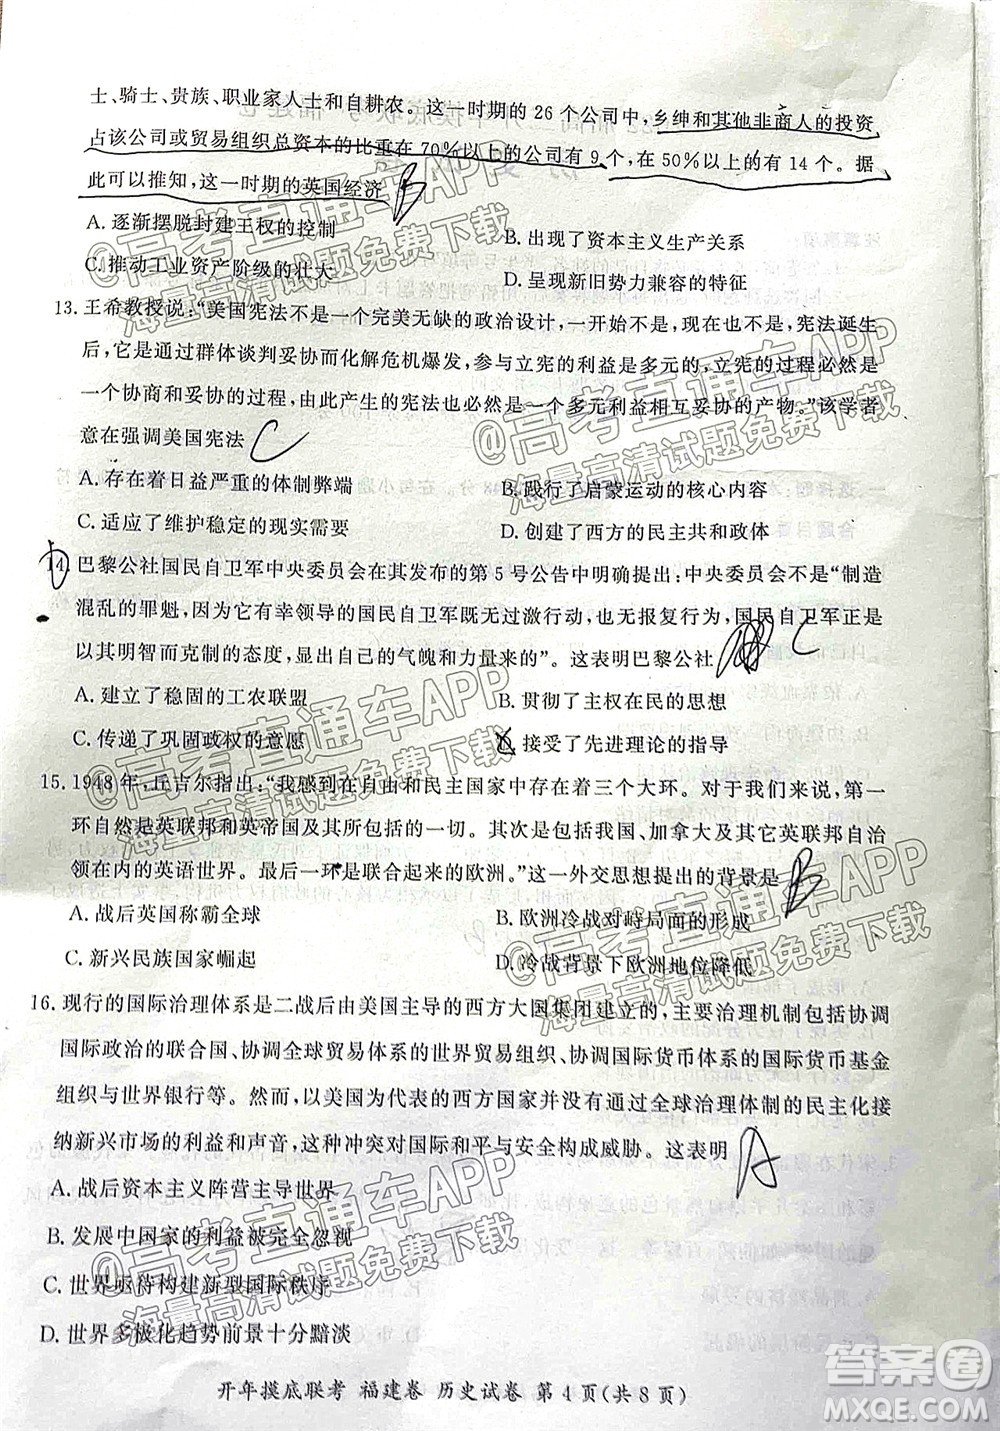 士、骑士、贵族、职业家人士和自耕农。这一时期的 26 个公司中，乡绅和其他非商人的投资
占该公司或贸易组织总资本的比重在 70%以上的公司有 9 个，在 50%以上的有 14 个。据
此可以推知，这一时期的英国经济 B
A. 逐渐摆脱封建王权的控制
B. 出现了资本主义生产关系
C. 推动工业资产阶级的壮大
D. 呈现新旧势力兼容的特征
13. 王希教授说：“美国宪法不是一个完美无缺的政治设计，一开始不是，现在也不是，宪法诞生
后，它是通过群体谈判妥协而化解危机爆发，参与立宪的利益是多元的，立宪的过程必然是
一个协商和妥协的过程，由此产生的宪法也必然是一个多元利益相互妥协的产物。”该学者
意在强调美国宪法 C
A. 存在着日益严重的体制弊端
B. 践行了启蒙运动的核心内容
C. 适应了维护稳定的现实需要
D. 创建了西方的民主共和政体
14. 巴黎公社国民自卫军中央委员会在其发布的第 5 号公告中明确提出：中央委员会不是“制造
混乱的罪魁，因为它有幸领导的国民自卫军既无过激行动，也无报复行为，国民自卫军正是
以其明智而克制的态度，显示出自己的气魄和力量来的”。这表明巴黎公社 C
A. 建立了稳固的工农联盟
B. 贯彻了主权在民的思想
C. 传递了巩固政权的意愿
D. 接受了先进理论的指导
15. 1948 年，丘吉尔指出：“我感到在自由和民主国家中存在着三个大环。对于我们来说，第一
环自然是英联邦和英帝国及其所包括的一切。其次是包括我国、加拿大及其它英联邦自治
领在内的英语世界。最后一环是联合起来的欧洲。”这一外交思想提出的背景是 B
A. 战后英国称霸全球
B. 欧洲冷战对峙局面的形成
C. 新兴民族国家崛起
D. 冷战背景下欧洲地位降低
16. 现行的国际治理体系是二战后由美国主导的西方大国集团建立的，主要治理机制包括协调
国际政治的联合国、协调全球贸易体系的世界贸易组织、协调国际货币体系的国际货币基金
组织与世界银行等。然而，以美国为代表的西方国家并没有通过全球治理体制的民主化接
纳新兴市场的利益和声音，这种冲突对国际和平与安全构成威胁。这表明 A
A. 战后资本主义阵营主导世界
B. 发展中国家的利益被完全忽视
C. 世界亟待构建新型国际秩序
D. 世界多极化趋势前景十分黯淡
开年摸底联考 福建卷 历史试卷 第 4 页(共 8 页)
@高考直通车APP
海量高清试题免费下载
@高考直通车APP
海量高清试题免费下载
@高考直通车APP
海量高清试题免费下载
@高考直通车APP
海量高清试题免费下载
@高考直通车APP
海量高清试题免费下载
@高考直通车APP
海量高清试题免费下载
答案圈
MXQE.COM